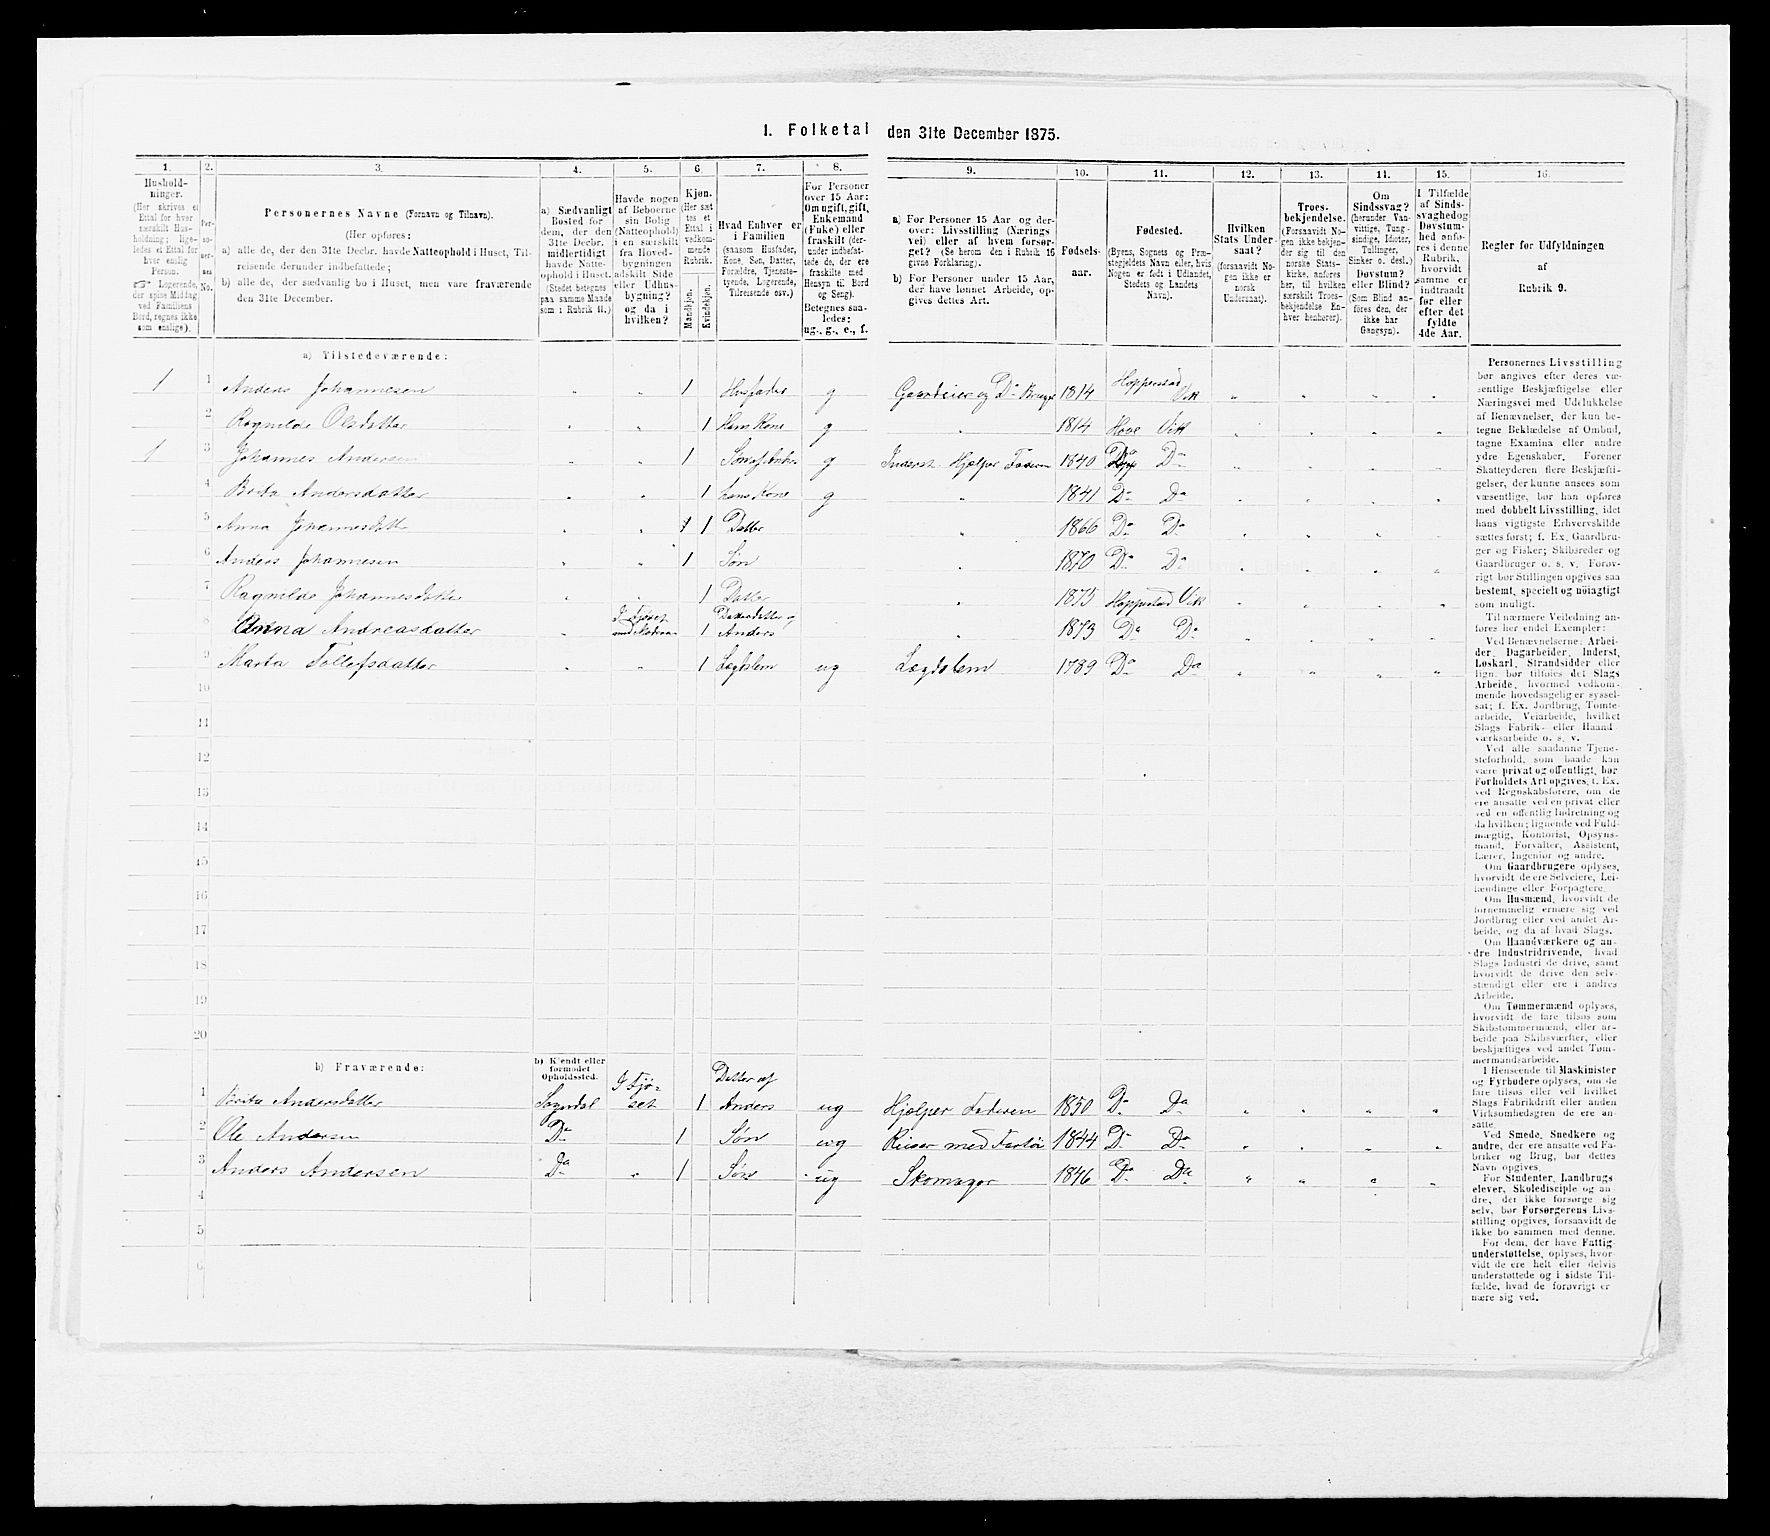 1. Folketal den 31te December 1875.
1. 2. 3. 4. 5. 6. 7. 8. 9. 10. 11. 12. 13. 14. 15. 16.
Hushold-
ninger.
(Her skrives et
Ettal for hver
særskilt Hus-
holdning; lige-
ledes et Ettal for
hver enslig
Person.
☞ Logerende,
der spise Middag
ved Familiens
Bord, regnes ikke
som enslige).
Per-
so-
ner-
nes
No.
Personernes Navne (Fornavn og Tilnavn).
(Her opføres:
a) alle de, der den 31te Decbr. havde Natteophold i Huset, Til-
reisende derunder indbefattede;
b) alle de, der sædvanlig bo i Huset, men vare fraværende
den 31te December.
a) Sædvanligt
Bosted for
dem, der den
31te Decbr.
midlertidigt
havde Natte-
ophold i Huset.
(Stedet betegnes
paa samme Maade
som i Rubrik 11.)
Havde nogen
af Beboerne
sin Bolig
(Natteophold)
i en særskilt
fra Hoved-
bygningen
adskilt Side
eller Udhus-
bygning?
og da i
hvilken?
Kjøn.
(Her sæt
tes et
Ettal i
vedkom-
mende
Rubrik.
Mandkjøn.
Kvindekjøn.
Hvad Enhver er
i Familien
(saasom Husfader,
Kone, Søn, Datter,
Forældre, Tjeneste-
tyende, Logerende,
Tilreisende osv.)
For Personer
over 15 Aar:
Om ugift, gift,
Enkemand
(Fuke) eller
fraskilt (der-
under indbefat-
tede de, der ere
fraskilte med
Hensyn til Bord
og Seng).
Betegnes saa-
ledes:
ug., g., e., f.
a) For Personer 15 Aar og der-
over: Livsstilling (Nærings
vei) eller af hvem forsør-
get? (Se herom den i Rubrik 16
givne Forklaring).
b) For Personer under 15 Aar,
der have lønnet Arbeide, op-
gives dettes Art.
Fødsels-
aar.
Fødested.
(Byens, Sognets og Præ-
stegjeldets Navn eller, hvis
Nogen er født i Udlandet,
Stedets og Landets
Navn).
Hvilken
Stats Under-
saat?
(forsaavidt No-
gen ikke er
norsk
Undersaat).
Troes-
bekjendelse.
(Forsaavidt No-
gen ikke bekjen-
der sig til den
norske Stats-
kirke, anføres
her, til hvilken
særskilt Troes-
bekjendelse En-
hver henhører).
Om
Sindssvag?
(herunder Van-
vittige, Tung-
sindige, Idioter,
Tullinger,
Sinker o. desl.)
Døvstum?
eller Blind?
(Som Blind an-
føres den, der
ikke har
Gangsyn).
I Tilfælde
af Sinds-
svaghed og
Døvstum-
hed anfø-
res i denne
Rubrik,
hvorvidt
samme er
indtraadt
før eller
efter det
fyldte
4de Aar.
Regler for Udfyldningen
af
Rubrik 9.
a) Tilstedeværende:
1 1 Anders Johannesen " " 1 Husfader g Gaardeier og Do Bruger 1814 Hopperstad Vik " " " "
2 Ragnilde Olsdatter " " 1 Hans Kone g " 1814 Hove Vik " " " "
1 3 Johannes Andersen " " 1 Søn af Anders g Inderst Hjælper Faderen 1840 Do Do " " " "
4 Brita Andersdatter " " 1 hans Kone g " 1841 Do Do " " " "
5 Anna Johannesdatter " " 1 Datter " 1866 Do Do " " " "
6 Anders Johannesen " " 1 Søn " 1870 Do Do " " " "
7 Ragnilde Johannesdatter " " 1 Datter " 1875 Hopperstad Vik " " " "
8 Anna Andreasdatter " I Fjøset med Moderen 1 Datterdatter af Anders " 1873 Do Do
9 Marta Tollefsdatter " " 1 Lægdslem ug Lægdslem 1789 Do Do " " " "
10
11
12
13
14
15
16
17
18
19
20
b) Fraværende:
b) Kjendt eller
formodet
Opholdssted.
1 Brita Andersdatter Sogndal I Fjøset 1 Datter af Anders ug Hjælper Faderen 1850 Do Do " " " "
2 Ole Andersen Do 1 Søn ug Reiser med Fartøi 1844 Do Do " " " "
3 Anders Andersen Do " 1 Søn ug Skomager 1846 Do Do " " " "
4
5
6
Personernes Livsstilling
bør angives efter deres væ-
sentlige Beskjæftigelse eller
Næringsvei med Udelukkelse
af Benævnelser, der kun be-
tegne Beklædelse af Ombud,
tagne Examina eller andre
ydre Egenskaber. Forener
Skatteyderen flere Beskjæfti-
gelser, der kunne ansees som
væsentlige, bør han opføres
med dobbelt Livsstilling, idet
hans vigtigste Erhvervskilde
sættes først; f. Ex. Gaardbru-
ger og Fisker; Skibsreder og
Gaardbruger o. s. v. Forøv-
rigt bør Stillingen opgives saa
bestemt, specielt og nøiagtigt
som muligt.
Til nærmere Veiledning an-
føres her endel Exempler:
Ved Benævnelserne: Arbei-
der, Dagarbeider, Inderst,
Løskarl, Strandsidder eller
lign. bør tilføies det Slags
Arbeide, hvormed vedkom-
mende hovedsagelig er syssel-
sat; f. Ex. Jordbrug, Tomte-
arbeide, Veiarbeide, hvilket
Slags Fabrik- eller Haand-
værksarbeide o. s. v.
Ved alle saadanne Tjene-
steforhold, som baade kan
være privat og offentligt, bør
Forholdets Art opgives, f. Ex.
ved Regnskabsførere, om de
ere ansatte ved en privat eller
ved en offentlig Indretning og
da hvilken; lignende ved Fuld-
mægtig, Kontorist, Opsyns-
mand, Forvalter, Assistent,
Lærer, Ingeniør og andre.
Om Gaardbrugere oplyses,
hvorvidt de ere Selveiere, Lei-
lændinge eller Forpagtere.
Om Husmænd, hvorvidt de
fornemmelig ernære sig ved
Jordbrug eller ved andet Ar-
beide, og da af hvad Slags.
Om Haandværkere og an-
dre Industridrivende, hvad
Slags Industri de drive, samt
hvorvidt de drive den selv-
stændigt eller ere i andres
Arbeide.
Om Tømmermænd oplyses,
hvorvidt de fare tilsøs som
Skibstømmermænd, eller ar-
beide paa Skibsværfter, eller
beskjæftiges ved andet Tøm-
mermandsarbeide.
I Henseende til Maskinister
og Fyrbødere oplyses, om de
fare tilsøs eller ved hvilket
Slags Fabrikdrift eller anden
Virksomhedsgren de ere an-
satte.
Ved Smede, Snedkere og
andre, der ere ansatte ved Fa-
briker og Brug, bør dettes
Navn opgives.
For Studenter, Landbrugs-
elever, Skoledisciple og an-
dre, der ikke forsørge sig
selv, bør Forsørgerens Livs-
stilling opgives, forsaavidt de
ikke bo sammen med denne.
For dem, der have Fattig-
understøttelse, oplyses, hvor-
vidt de ere helt eller delvis
understøttede og i sidste Til-
fælde, hvad de forøvrigt er
nære sig ved.